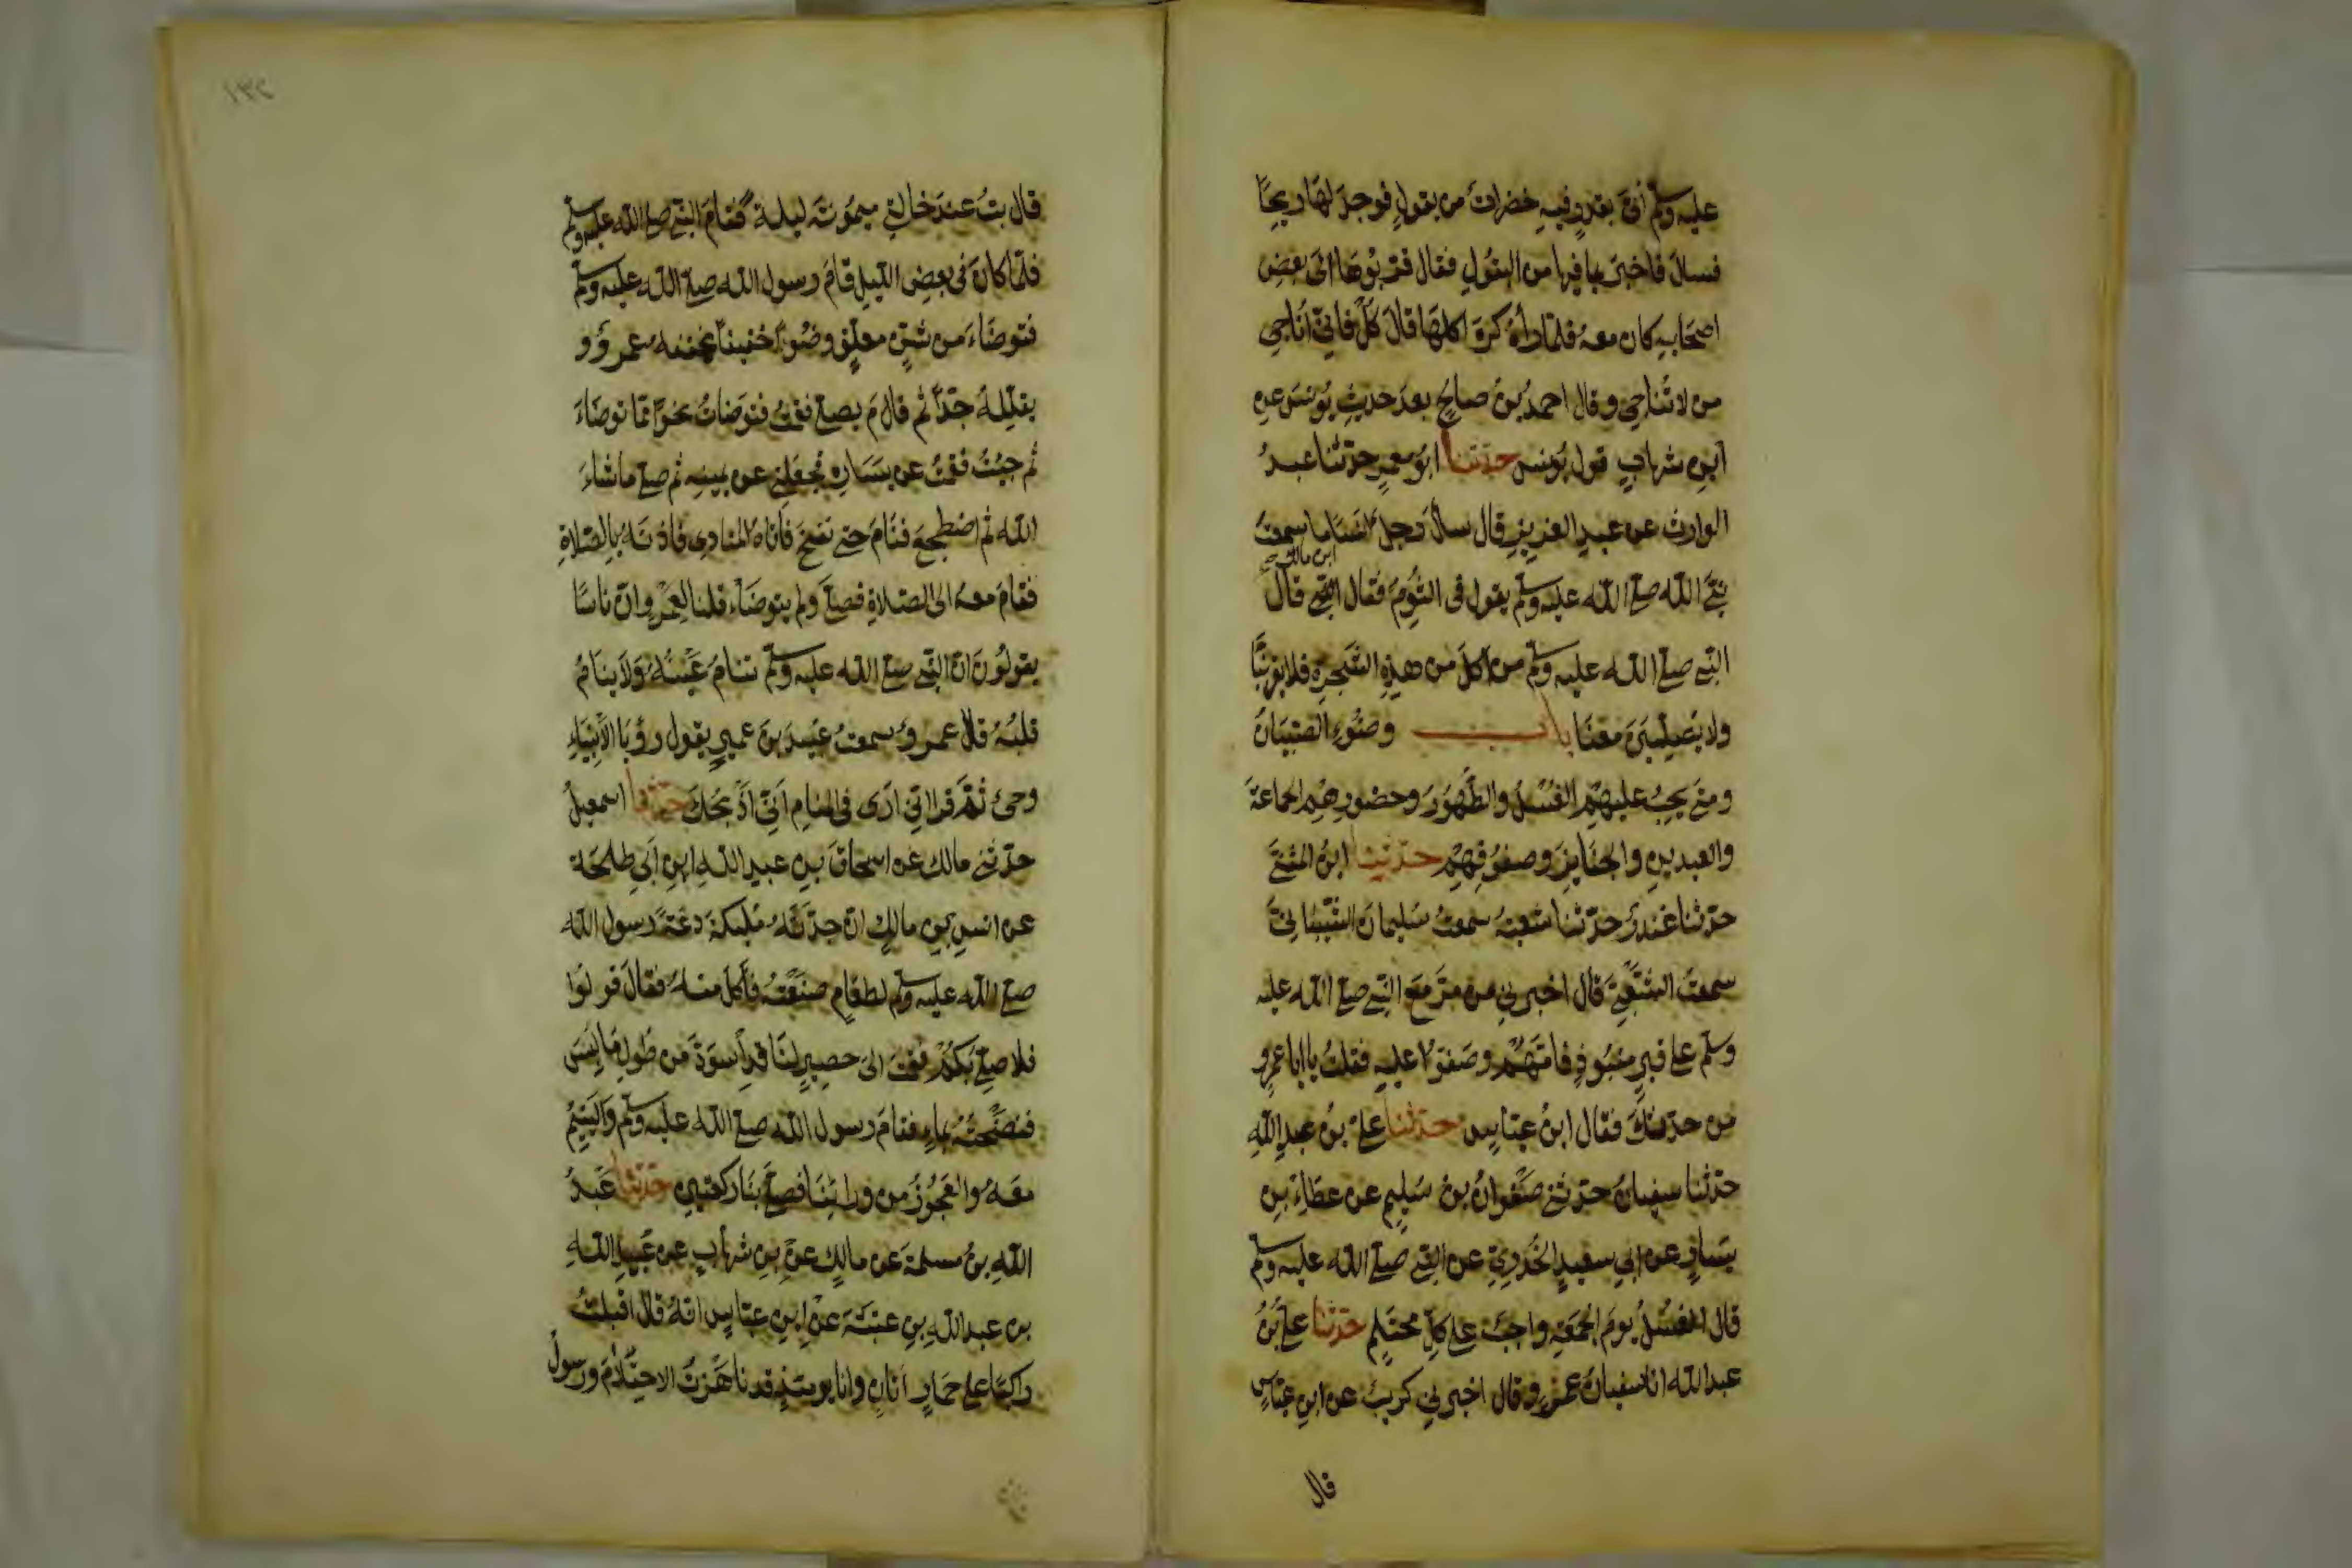 عليه وسلم أتى بقدر فيه خضرات من بقول فوجد لها ريحا
فسال فاخبر بما فيها من البقول فقال قربوها الى بعض
اصحابه كان معه فلما رآه كره اكلها قال كل فاني اناجي
من لا تناجي وقال احمد بن صالح بعد حديث يونس عن
ابن شهاب قول يونس حدثنا ابو معمر حدثنا عبد
الوارث عن عبد العزيز قال سأل رجل انسا ما سمعت
ابن مالك
نبي الله صلى الله عليه وسلم يقول في الثوم فقال النبي قال
النبي صلى الله عليه وسلم من اكل من هذه الشجرة فلا يقربنا
ولا يصلين معنا باب وضوء الصبيان
ومتى يجب عليهم الغسل والطهور وحضورهم الجماعة
والعيدين والجنايز وصفوفهم حدثنا ابن المثنى
حدثنا غندر حدثنا شعبة سمعت سليمان الشيباني
سمعت الشعبي قال اخبرني من مر مع النبي صلى الله عليه
وسلم على قبر منبوذ فامهم وصفوا عليه فقلت يا ابا عمرو
من حدثك فقال ابن عباس حدثنا علي بن عبد الله
حدثنا سفيان حدثني صفوان بن سليم عن عطاء بن
يسار عن ابي سعيد الخدري عن النبي صلى الله عليه وسلم
قال الغسل يوم الجمعة واجب على كل محتلم حدثنا علي بن
عبد الله انا سفيان عن عمرو قال اخبرني كريب عن ابن عباس
قال
١٣٢
قال بت عند خالتي ميمونة ليلة فنام النبي صلى الله عليه وسلم
فلما كان في بعض الليل قام رسول الله صلى الله عليه وسلم
فتوضاء من شن معلق وضوءا خفيفا يخففه عمرو و
يقلله جدا ثم قام يصلي فقمت فتوضات نحوا مما توضاء
ثم جئت فقمت عن يساره فجعلني عن يمينه ثم صلى ما شاء
الله ثم اضطجع فنام حتى نفخ فاتاه المنادي فاذنه بالصلاة
فقام معه الى الصلاة فصلى ولم يتوضاء قلنا لعمرو ان ناسا
يقولون ان النبي صلى الله عليه وسلم تنام عينه ولا ينام
قلبه قال عمرو سمعت عبيد بن عمير يقول رؤيا الأنبياء
وحي ثم قرا اني ارى في المنام اني اذبحك حدثنا اسمعيل
حدثني مالك عن اسحاق بن عبد الله ابن ابي طلحة
عن انس بن مالك ان جدته مليكة دعت رسول الله
صلى الله عليه وسلم لطعام صنعته فأكل منه فقال قوموا
فلا صلي بكم فقمت الى حصير لنا قد اسود من طول ما لبس
فنضحته بماء فقام رسول الله صلى الله عليه وسلم واليتيم
معه والعجوز من ورائنا فصلى بنا ركعتين حدثنا عبد
الله بن مسلمة عن مالك عن بن شهاب عن عبيد الله
بن عبد الله بن عتبة عن ابن عباس انه قال اقبلت
راكبا على حمار اتان وانا يومئذ قد ناهزت الاحتلام ورسول